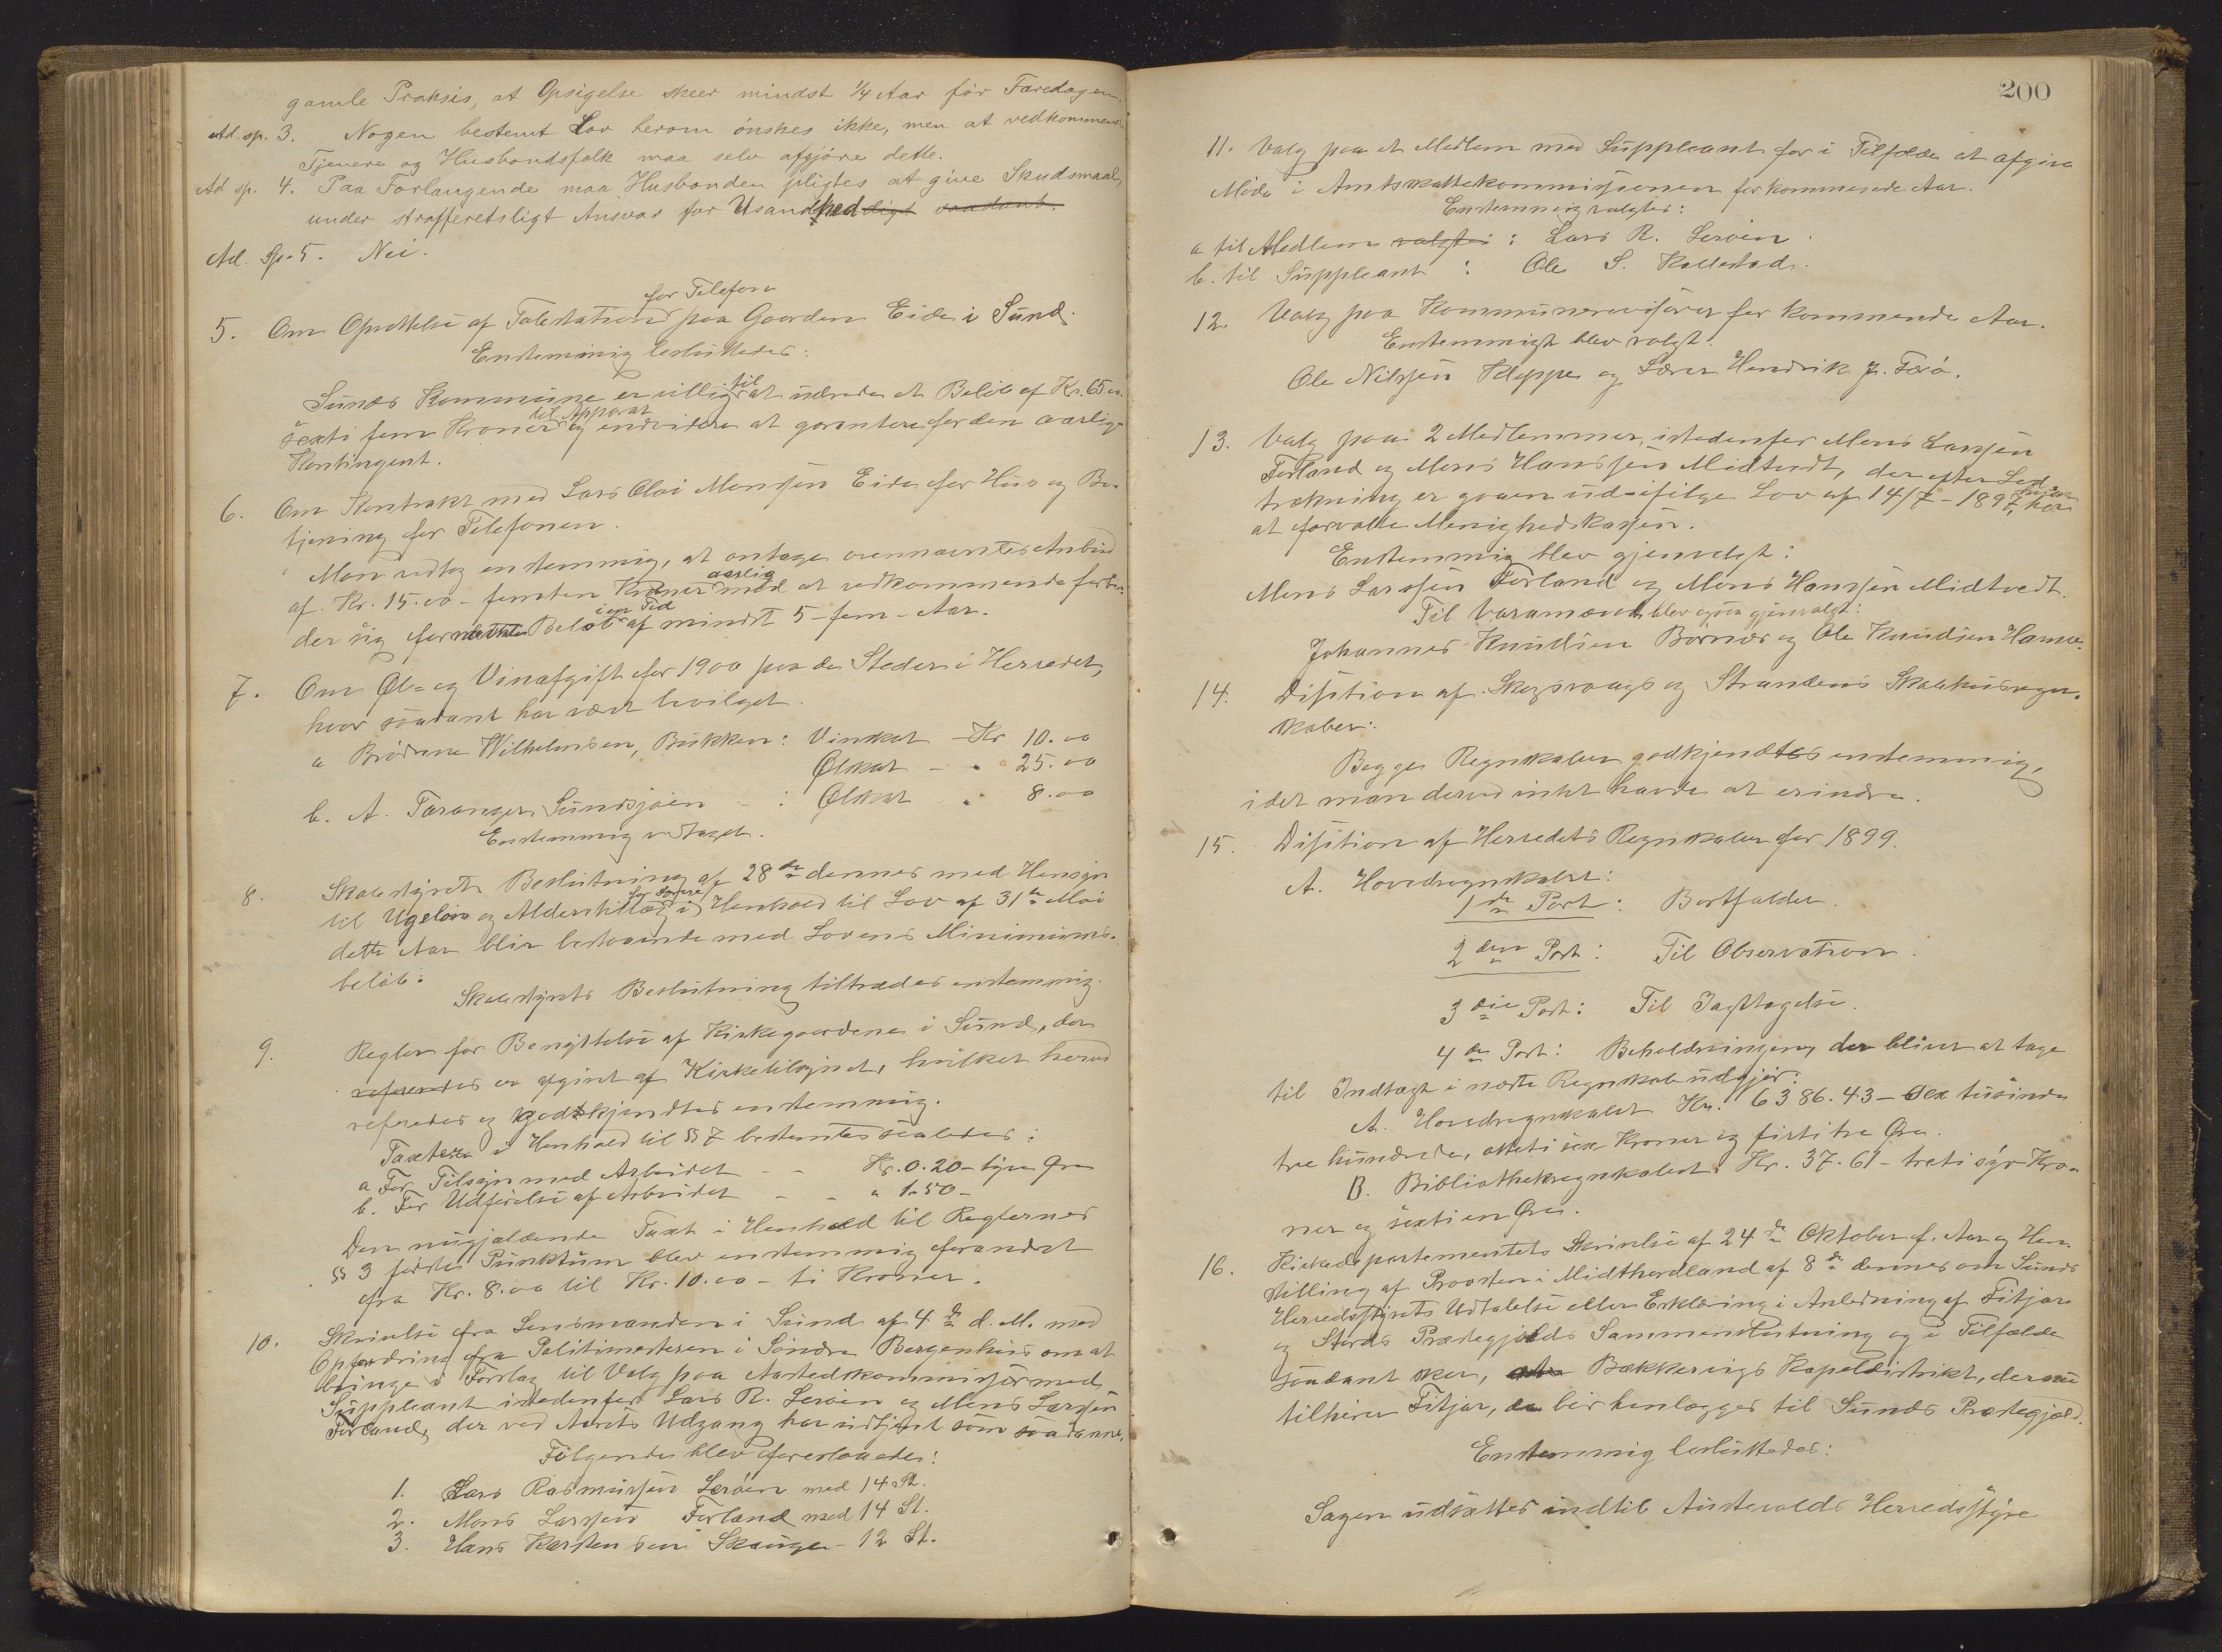 gamle Praksis, at Opsigelse skeer mindst 1/4 Aar før Faredagen.
Ad. sp. 3. Nogen bestemt Lov herom ønskes ikke, men at vedkommende
Tjenere og Husbondsfolk maa selv afgjøre dette.
Ad sp. 4. Paa Forlangende maa Husbonden pligtes at give Skudsmaal,
under strafferetsligt Ansvar for Usandhed saadant.
Ad. Sp. 5. Nei.
for Telefon
5. Om Oprettelse af Talestation paa Gaarden Eide i Sund.
Enstemmig besluttedes:
Sunds Kommune er villig til at udrede et Beløb af Kr. 65.00
sexti fem Kroner til Apparat og endvidere at garantere for den aarlige
Kontingent.
6. Om Kontrakt med Lars Olai Monssen Eide for Hus og Be-
tjening for Telefonen.
Man vedtog enstemmig, at antage ovennævntes Anbud
af Kr. 15.00 - femten Kroner aarlig mod at vedkommende forbin-
der sig for Beløb i en Tid af mindst 5 - fem - Aar.
7. Om Øl- og Vinafgift for 1900 paa de Steder i Herredet,
hvor saadant har vært bevilget.
a Brødrene Wilhelmsen, Bukken: Vinskat - Kr 10.00
Ølskat - " 25.00
b. A. Taranger, Sundsjøen - : Ølskat " 8.00
Enstemmig vedtaget.
8. Skolestyrets Beslutning af 28de dennes med Hensyn
til Ugeløn og Alderstillæg for Lærere i Henhold til Lov af 31te Mai
dette Aar blir bestaaende med Lovens Minimums-
beløb.
Skolestyrets Beslutning tiltrædes enstemmig.
9. Regler for Benyttelse af Kirkegaardene i Sund, der
referertes er afgivet af Kirketilsynet, hvilket herved
referedes og godkjendtes enstemmig.
Taxterne i Henhold til § 7 bestemtes saaledes:
a For Tilsyn med Arbeidet - - Kr. 0.20 - tyve Øre
b. For Udførelse af Arbeidet - - " 1.50 -
Den nugjældende Taxt i Henhold til Reglernes
§ 3 første Punktum blev enstemmig forandret
fra Kr. 8.00 til Kr. 10.00 - ti Kroner.
10. Skrivelse fra Lensmanden i Sund af 4de d. M. med
Opfordring fra Politimesteren i Søndre Bergenhus om at
bringe i Forslag til Valg paa Aastedskommissær med
Suppleant istedenfor Lars R. Lerøen og Mons Larssen
Forland, der ved Aarets Udgang har udtjent som saadanne.
Følgende blev foreslaaedes:
1. Lars Rasmussen Lerøen med 14 St.
2. Mons Larssen Forland med 14 St.
3. Hans Karstensen Skauge - 12 St.
200
11. Valg paa et Medlem med Suppleant for i Tilfælde at afgive
Møde i Amtskattekommissionen for kommende Aar.
Enstemmig valgtes:
a til Medlem valgtes: Lars R. Lerøen.
b. til Suppleant: Ole S. Kallestad.
12. Valg paa Kommunerevisorer for kommende Aar.
Enstemmigt blev valgt:
Ole Nilssen Kleppe og Lærer Hendrik J. Færø.
13. Valg paa 2 Medlemmer, istedenfor Mons Larssen
Forland og Mons Hanssen Midtvedt, der efter Lod-
trækning er gaaen ud ifølge Lov af 14/7 - 1897,
at forvalte Menighedskassen.
Enstemmig blev gjenvalgt:
Mons Larssen Forland og Mons Hanssen Midtvedt.
Til Varamænd blev ogsaa gjenvalgt:
Johannes Knudsen Børnæs og Ole Knudsen Hamre.
14. Disition af Skogsvaags og Strandens Skolehusregn-
skaber:
Begge Regnskaber godkjendtes enstemmig,
idet man derved intet havde at erindre.
15. Disition af Herredets Regnskaber for 1899.
A. Hovedregnskabet:
1ste Post: Bortfalder.
2den Post: Til Observation.
3die Post: Til Iagttagelse.
4de Post: Beholdningen, der bliver at tage
til Indtægt i næste Regnskab udgjør:
A. Hovedregnskabet Kr. 6386.43 - sex tusinde
tre hundrede, otteti sex Kroner og firti tre Øre.
B. Bibliothekregnskabet: Kr. 37.61 - treti syv Kro-
ner og sexti en Øre.
16. Kirkedepartementets Skrivelse af 24de Oktober f. Aar og Hen-
stilling af Provsten i Midthordland af 8de dennes om Sunds
Herredsstyrets Udtalelse eller Erklæring i Anledning af Fitjar
og Stords Prestegjælds Sammenslutning og i Tilfælde
saadant sker, Bækkervigs Kapeldistrikt, der nu
tilhører Fitjar, da bør henlægges til Sunds Prestegjæld.
Enstemmig besluttedes:
Sagen udsættes indtil Austevolds Herredsstyre